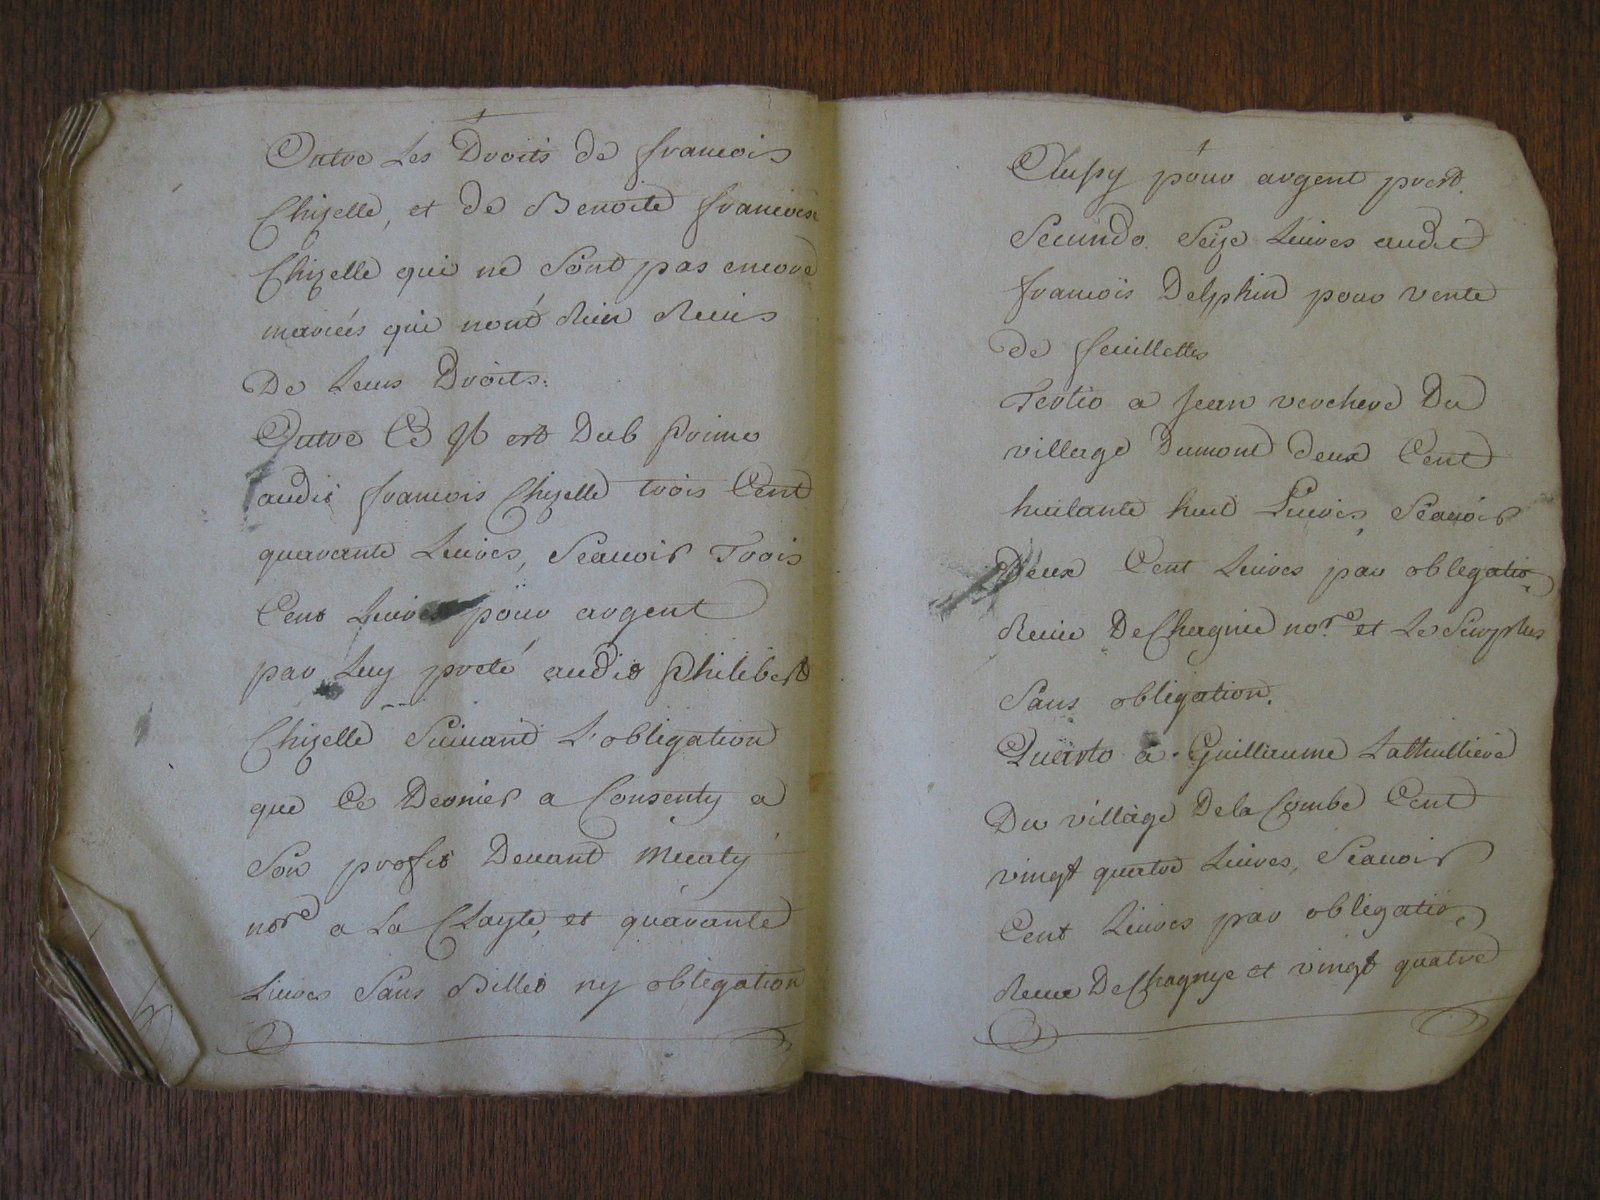 Outre Les Droits de francois
Chizelle, et de Benoite francoise
Chizelle qui ne Sont pas encore
mariées qui nont Rien Recus
De Leurs Droits.
Outre Ce Il est Dub primo
audit francois Chizelle trois Cent
quarante Livres, Scauoir Trois
Cent Livres pour argent
par Luy preté audit philibert
Chizelle Suiuant L'obligation
que Ce Dernier a Consenty a
Son profit Deuant
nore a La Clayte, et quarante
Liures Sans Billet ny obligation
pour argent prest.
Secundo. Seize Liures audit
francois Delphin pour vente
de feuillettes
Tertio a Jean verchere Du
village Dumont deux Cent
huitante huit Liures, Scauoir
Deux Cent Liures par obligatio
Recue DeChagnie nore et Le Surplus
Sans obligation.
Quarto a Guillaume Lathuilliere
Du village Dela Combe Cent
vingt quatre Liures, Scauoir
Cent Liures par obligatio
Recue DeChagnye et vingt quatre